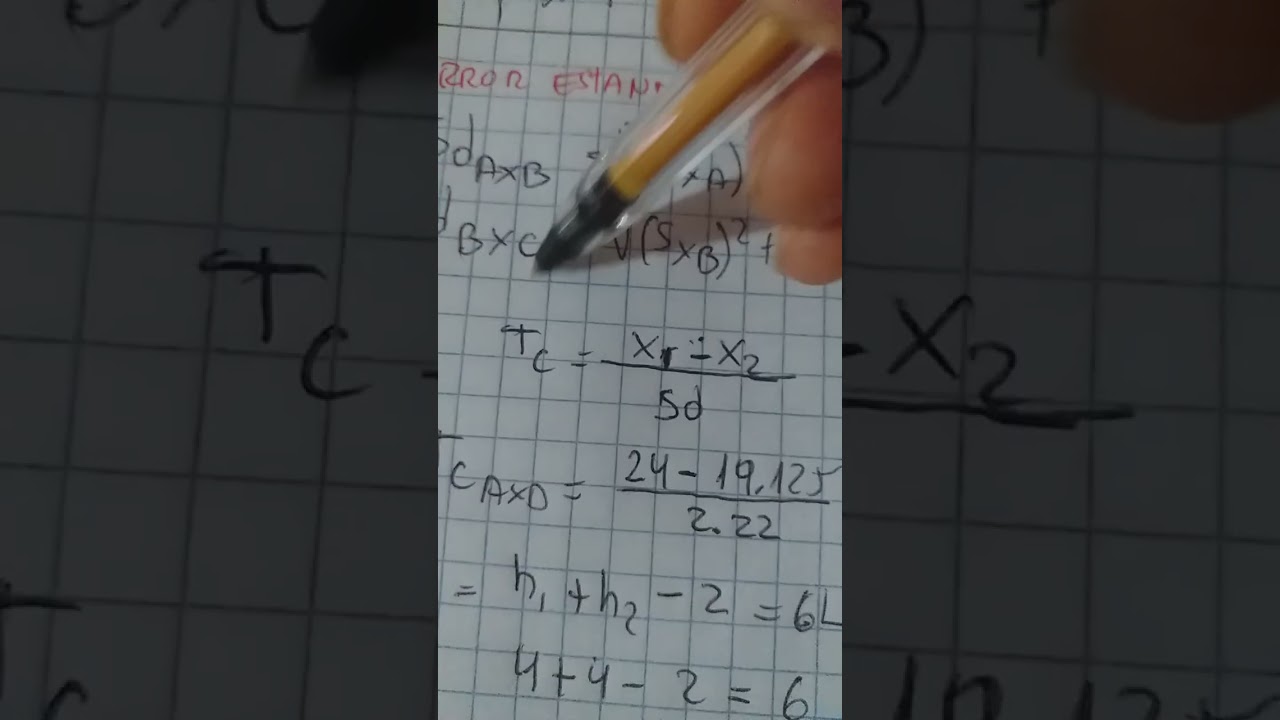 RROR ESTAN
SdAXB = XA)
dBXC V(SXB)² +
TC = X1 - X2
Sd
TCAXD = 24 - 19.125
2.22
= h1 + h2 - 2 = 6L
4 + 4 - 2 = 6